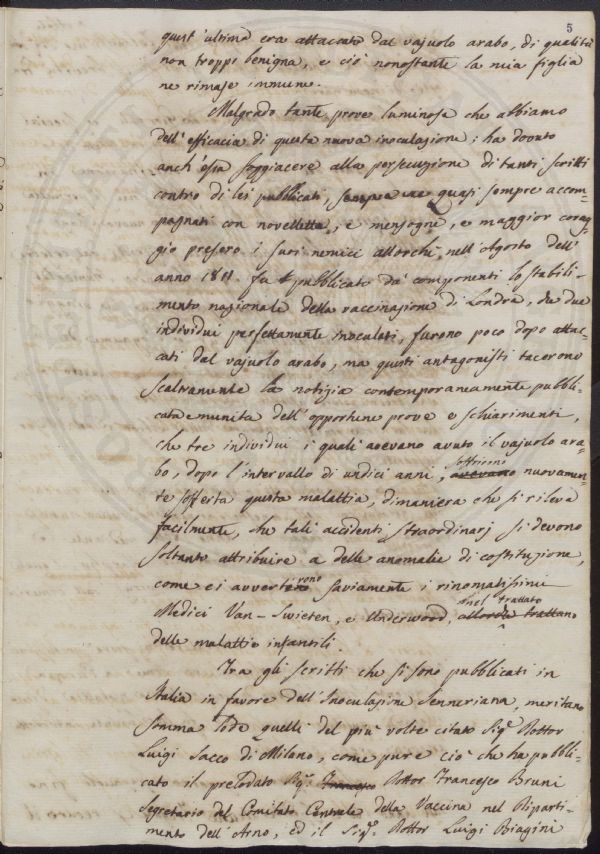 5
quest'ultima era attaccata dal vajuolo arabo, di qualità
non troppo benigna, e ciò nonostante la mia figlia
ne rimase immune.
Malgrado tante prove luminose che abbiamo
dell'efficacia di questa nuova inoculazione; ha dovuto
anch'essa soggiacere alla persecuzione di tanti scritti
contro di lei pubblicati, quasi sempre accom-
pagnati con novellette, e mensogne, e maggior corag-
gio presero i suoi nemici allorchè, nell'Agosto dell'
anno 1811. fu pubblicato da' componenti lo stabili-
mento nazionale della vaccinazione di Londra, che due
individui perfettamente inoculati, furono poco dopo attac-
cati dal vajuolo arabo, ma questi antagonisti tacerono
scaltramente la notizia contemporaneamente pubbli-
cata e munita dell'opportune prove e schiarimenti,
che tre individui i quali avevano avuto il vajuolo ara-
bo, dopo l'intervallo di undici anni, avevano soffrirono nuovamen-
te sofferta questa malattia, dimaniera che si rileva
facilmente, che tali accidenti straordinarj si devono
soltanto attribuire a delle anomalie di costituzione,
come ci avvertirono saviamente i rinomatissimi
Medici Van-Swieten, e Underwood, allorchè trattano nel trattato
delle malattie infantili.
Tra gli scritti che si sono pubblicati in
Italia in favore dell'Inoculazione Jenneriana, meritano
somma lode quelli del più volte citato Sig.r Dottor
Luigi Sacco di Milano, come pure ciò che ha pubbli-
cato il prelodato Sig.r Francesco Dottor Francesco Bruni
Segretario del Comitato Centrale della Vaccina nel Diparti-
mento dell'Arno, ed il Sig.r Dottor Luigi Biagini